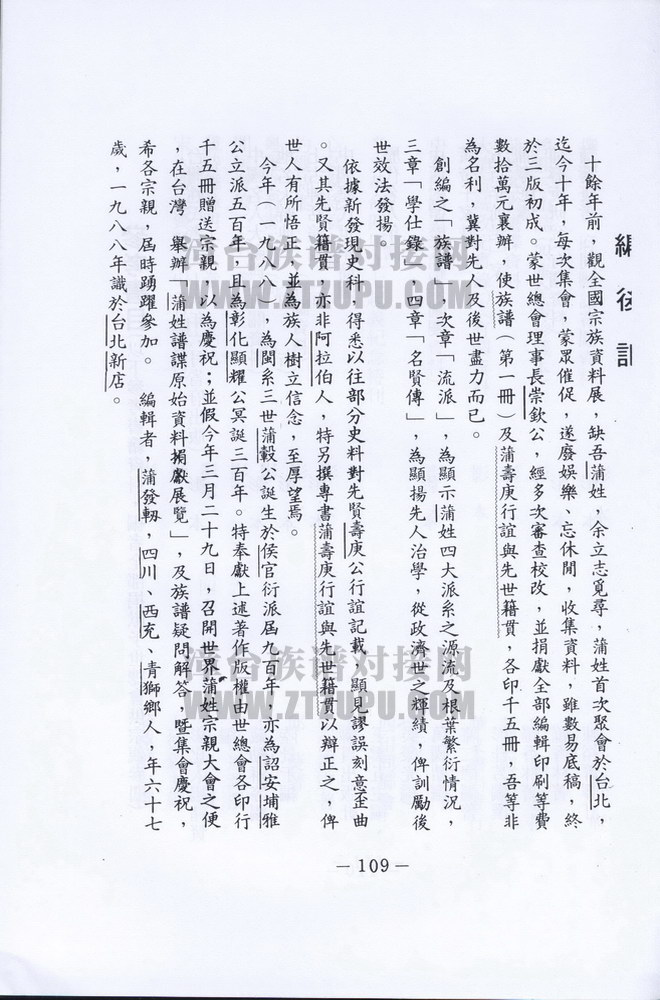 編後記
十餘年前，觀全國宗族資料展，缺吾蒲姓，余立志覓尋，蒲姓首次聚會於台北，
迄今十年，每次集會，蒙眾催促，遂廢娛樂、忘休閒，收集資料，雖數易底稿，終
於三版初成。蒙世總會理事長崇欽公，經多次審查校改，並捐獻全部編輯印刷等費
數拾萬元襄辦，使族譜（第一冊）及蒲壽庚行誼與先世籍貫，各印千五冊，吾等非
為名利，冀對先人及後世盡力而已。
創編之「族譜」，次章「流派」，為顯示蒲姓四大派系之源流及根葉繁衍情況，
三章「學仕錄」，四章「名賢傳」，為顯揚先人治學，從政濟世之輝績，俾訓勵後
世效法發揚。
依據新發現史料，得悉以往部分史料對先賢壽庚公行誼記載，顯見謬誤刻意歪曲
。又其先賢籍貫，亦非阿拉伯人，特另撰專書蒲壽庚行誼與先世籍貫以辯正之，俾
世人有所悟正，並為族人樹立信念，至厚望焉。
今年（一九八八），為閩系三世蒲轂公誕生於侯官衍派屆九百年，亦為詔安埔雅
公立派五百年，且為彰化顯耀公冥誕三百年。特奉獻上述著作版權由世總會各印行
千五冊贈送宗親，以為慶祝；並假今年三月二十九日，召開世界蒲姓宗親大會之便
，在台灣　舉辦「蒲姓譜諜原始資料捐獻展覽」，及族譜疑問解答，暨集會慶祝，
希各宗親，屆時踴躍參加。　編輯者，蒲發軔，四川、西充、青獅鄉人，年六十七
歲，一九八八年識於台北新店。
－109－
漳台族谱对接网
WWW.ZTZUPU.COM
漳台族谱对接网
WWW.ZTZUPU.COM